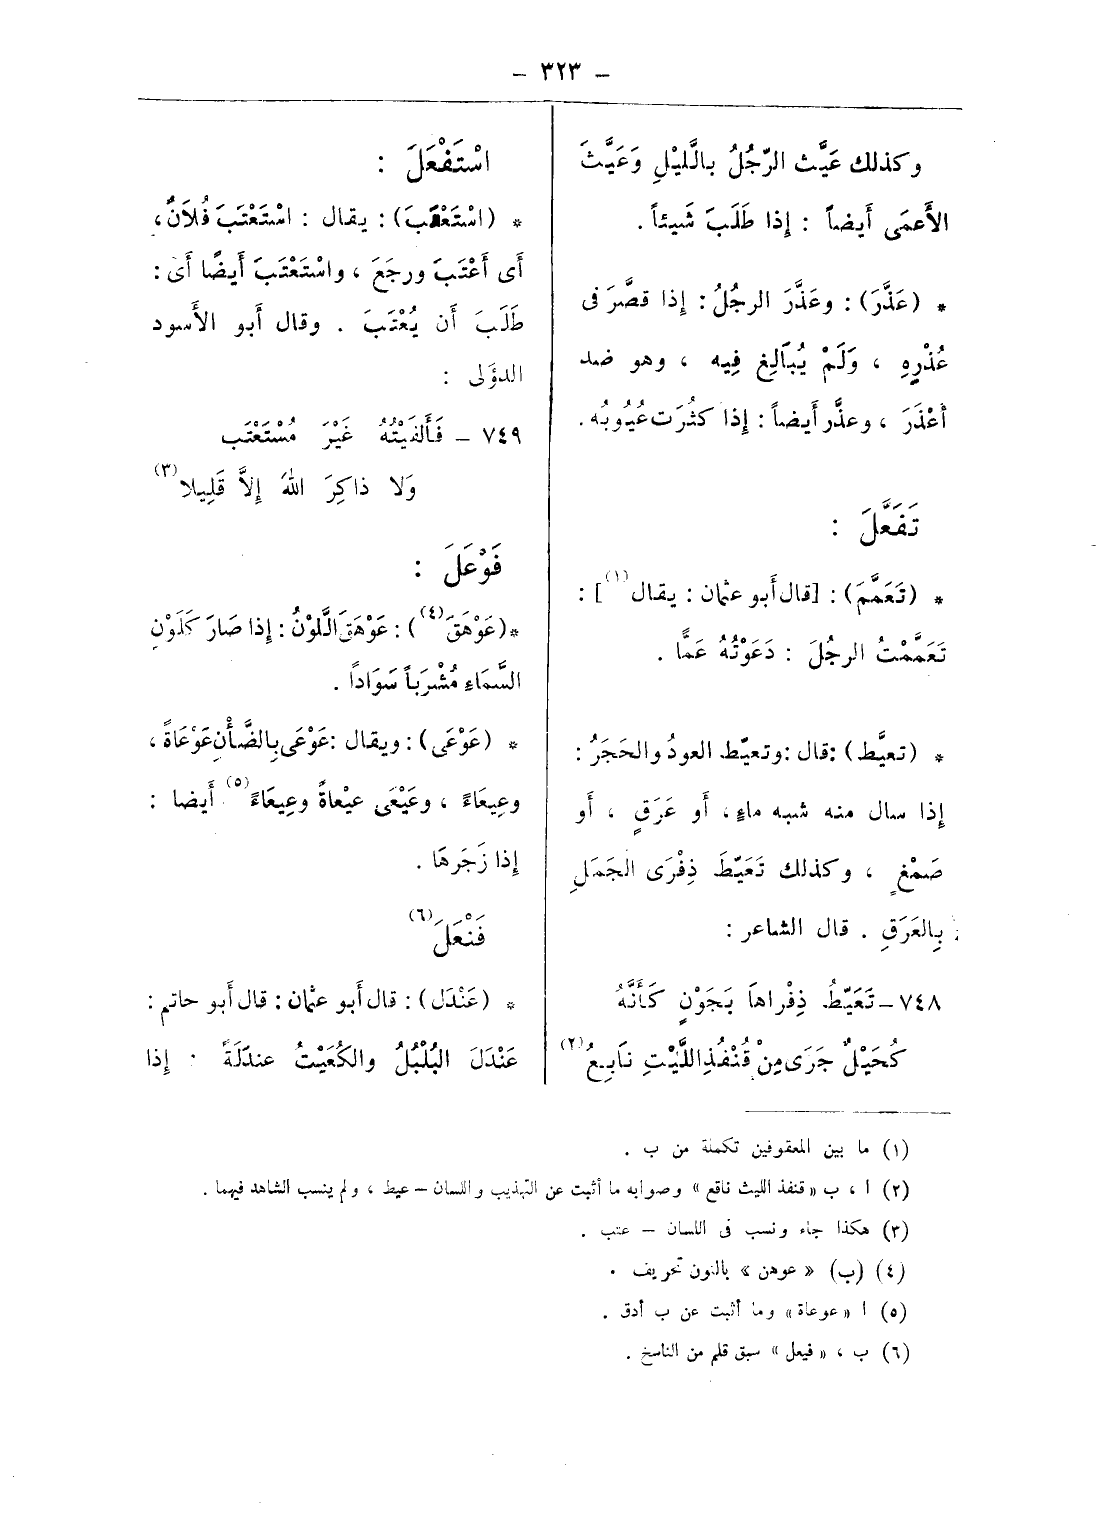 – ٣٢٣ –
وكذلك عَيَّث الرّجُلُ بالَّليْلِ وَعَيَّثَ
الأَعمَى أَيضاً : إِذا طَلَبَ شَيئاً .
* (عَذَّرَ) : وعَذَّرَ الرجُلُ : إِذا قصَّرَ فى
عُذْرِهِ ، وَلَمْ يُبَالِغ فِيه ، وهو ضد
أَعْذَرَ ، وعذَّر أَيضاً : إِذا كثُرَت عُيُوبُه .
تَفَعَّلَ :
* (تَعَمَّمَ) : [قال أَبو عثمان : يقال (١)] :
تَعَمَّمْتُ الرجُلَ : دَعَوْتُهُ عَمًّا .
* (تعيَّط) : قال : وتعيّط العودُ والحَجَرُ :
إِذا سال منه شبه ماءٍ ، أَو عَرَقٍ ، أَو
صَمْغٍ ، وكذلك تَعَيّطَ ذِفْرَى الجَمَلِ
بِالعَرَقِ . قال الشاعر :
٧٤٨ – تَعَيّطُ ذِفْراهَا بَجَوْنٍ كَأَنَّهُ
كُحَيْلٌ جَرَى مِنْ قُنْفُذِ اللَّيْتِ نَابِعُ (٢)
اسْتَفْعَلَ :
* (اسْتَعْتَبَ) : يقال : اسْتَعْتَبَ فُلَانٌ ،
أَى أَعْتَبَ ورجَعَ ، واسْتَعْتَبَ أَيضًا أَى :
طَلَبَ أَن يُعْتَبَ . وقال أَبو الأَسود
الدؤَلى :
٧٤٩ – فَأَلفَيْتُهُ غَيْرَ مُسْتَعْتَب
وَلا ذاكِرَ اللهَ إِلاَّ قَلِيلا (٣)
فَوْعَلَ :
* (عَوْهَقَ (٤)) : عَوْهَقَ الَّلوْنُ : إِذا صَارَ كَلَوْنِ
السَّمَاءِ مُشْرَباً سَوَاداً .
* (عَوْعَى) : ويقال : عَوْعَى بِالضَّأْنِ عَوْعَاةً ،
وعِيعَاءً ، وعَيْعَى عيْعاةً وعِيعَاءً (٥) أَيضا :
إِذا زَجَرهَا .
فَنْعَلَ (٦)
* (عَنْدَل) : قال أَبو عثمان : قال أَبو حاتم :
عَنْدَلَ البُلْبُلُ والكُعَيْتُ عندَلَةً : إِذا
(١) ما بين المعقوفين تكملة من ب .
(٢) ا ، ب « قنفذ الليث ناقع » وصوابه ما أثبت عن التهذيب واللسان – عيط ، ولم ينسب الشاهد فيهما .
(٣) هكذا جاء ونسب فى اللسان – عتب .
(٤) (ب) « عوهن » بالنون تحريف .
(٥) ا « عوعاة » وما أثبت عن ب أدق .
(٦) ب ، « فيعل » سبق قلم من الناسخ .